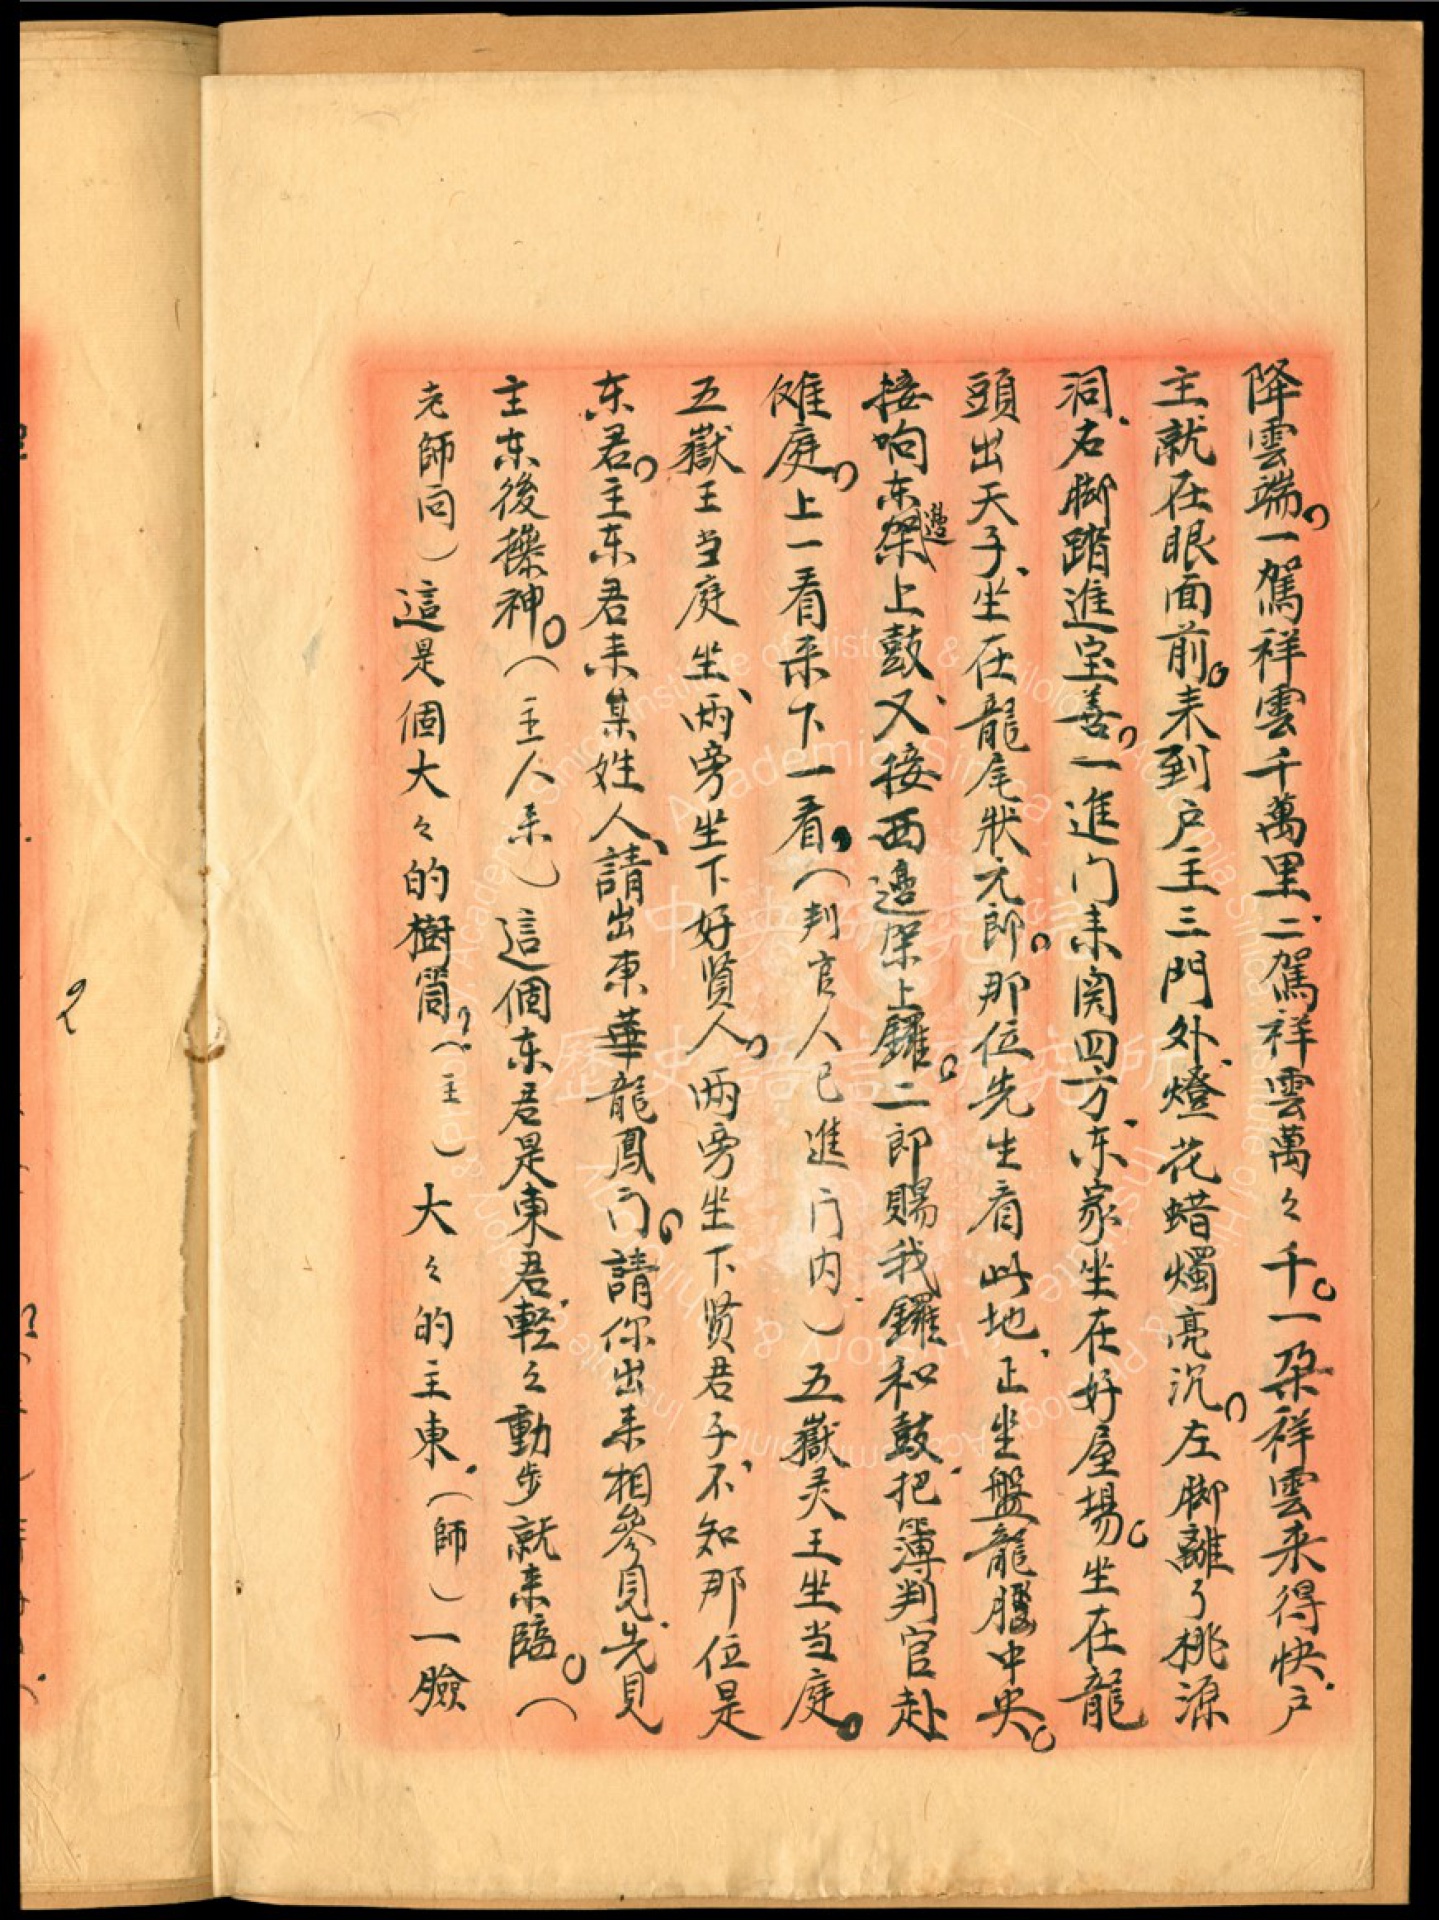 降雲端。一駕祥雲千萬里、二駕祥雲萬々千。一朵祥雲来得快、户
主就在眼面前。来到户主三門外、燈花蜡燭亮沉。左脚離了桃源
洞、右脚踏進宝善。一進门来関四方、东家坐在好屋場。坐在龍
頭出天子、坐在龍尾狀元郎。那位先生看此地、正坐盤龍腰中央。
接响东邊架上鼓、又接西邊架上鑼。二郎賜我鑼和鼓、把簿判官赴
傩庭。上一看来下一看。（判官人已進门内）五嶽灵王坐当庭。
五嶽王当庭坐、兩旁坐下好贤人。两旁坐下贤君子、不知那位是
东君。主东君来某姓人、請出東華龍鳳门。請你出来相參見、先見
主东後操神。（主人来）這個东君是東君、軽々動步就来臨。（
老師同）這是個大々的樹筒。（主）大々的主東、（師）一臉
中央研究院
歷史語言研究所
Institute of History & Philology
Academia Sinica